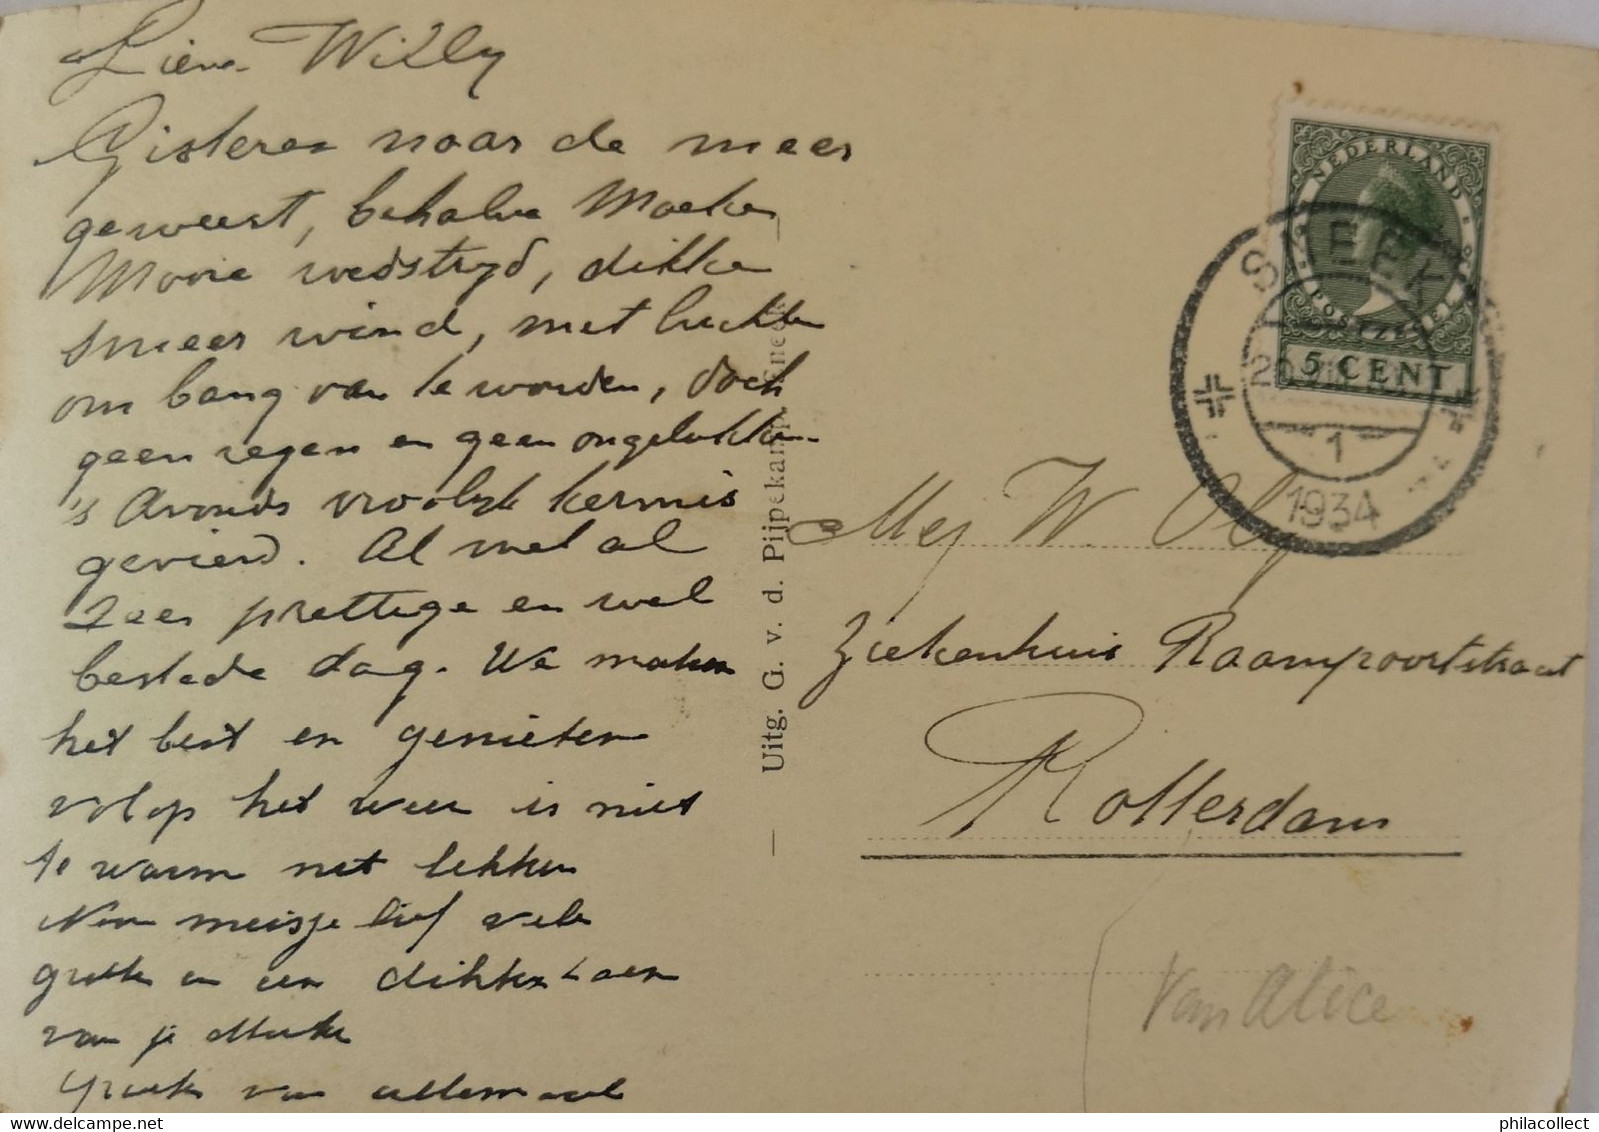 Lieve Willy
Gisteren naar de meer
geweest, behalve Moeke
Mooie wedstryd, dikke
smeer wind, met luchten
om bang van te worden, doch
geen regen en geen ongelukken
's Avonds vroolyk kermis
gevierd. Al met al
Zeer prettige en wel
bestede dag. We maken
het best en genieten
volop het weer is niet
te warm net lekker
Nou meisje lief vele
groeten en een dikken zoen
van je Moeke
groeten van allemaal
Uitg. G. v. d. Pijpekamp, Sneek
NEDERLAND
POSTZEGEL
5 CENT
SNEEK
1
1934
Mej W. Oly
Ziekenhuis Raampoortstraat
Rotterdam
Van Alice
philacollect